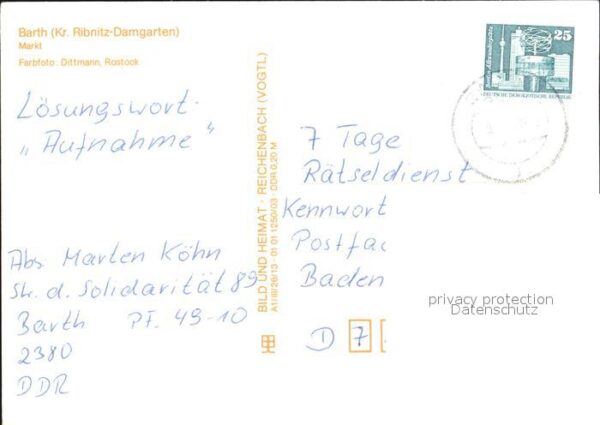 Barth (Kr. Ribnitz-Damgarten)
Markt
Farbfoto: Dittmann, Rostock
Lösungswort
"Aufnahme"
Abs Marten Köhn
Str. d. Solidarität 89
Barth PF. 49-10
2380
DDR
BILD UND HEIMAT · REICHENBACH (VOGTL)
A1/III/26/13 · 01 01 1250/03 · DDR 0,20 M
25
Berlin, Alexanderplatz
DEUTSCHE DEMOKRATISCHE REPUBLIK
7 Tage
Rätseldienst
Kennwort
Postfac
Baden
D 7
privacy protection
Datenschutz